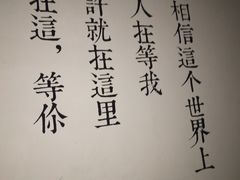 相信這个世界上
人在等我
許就在這里
在這，等你